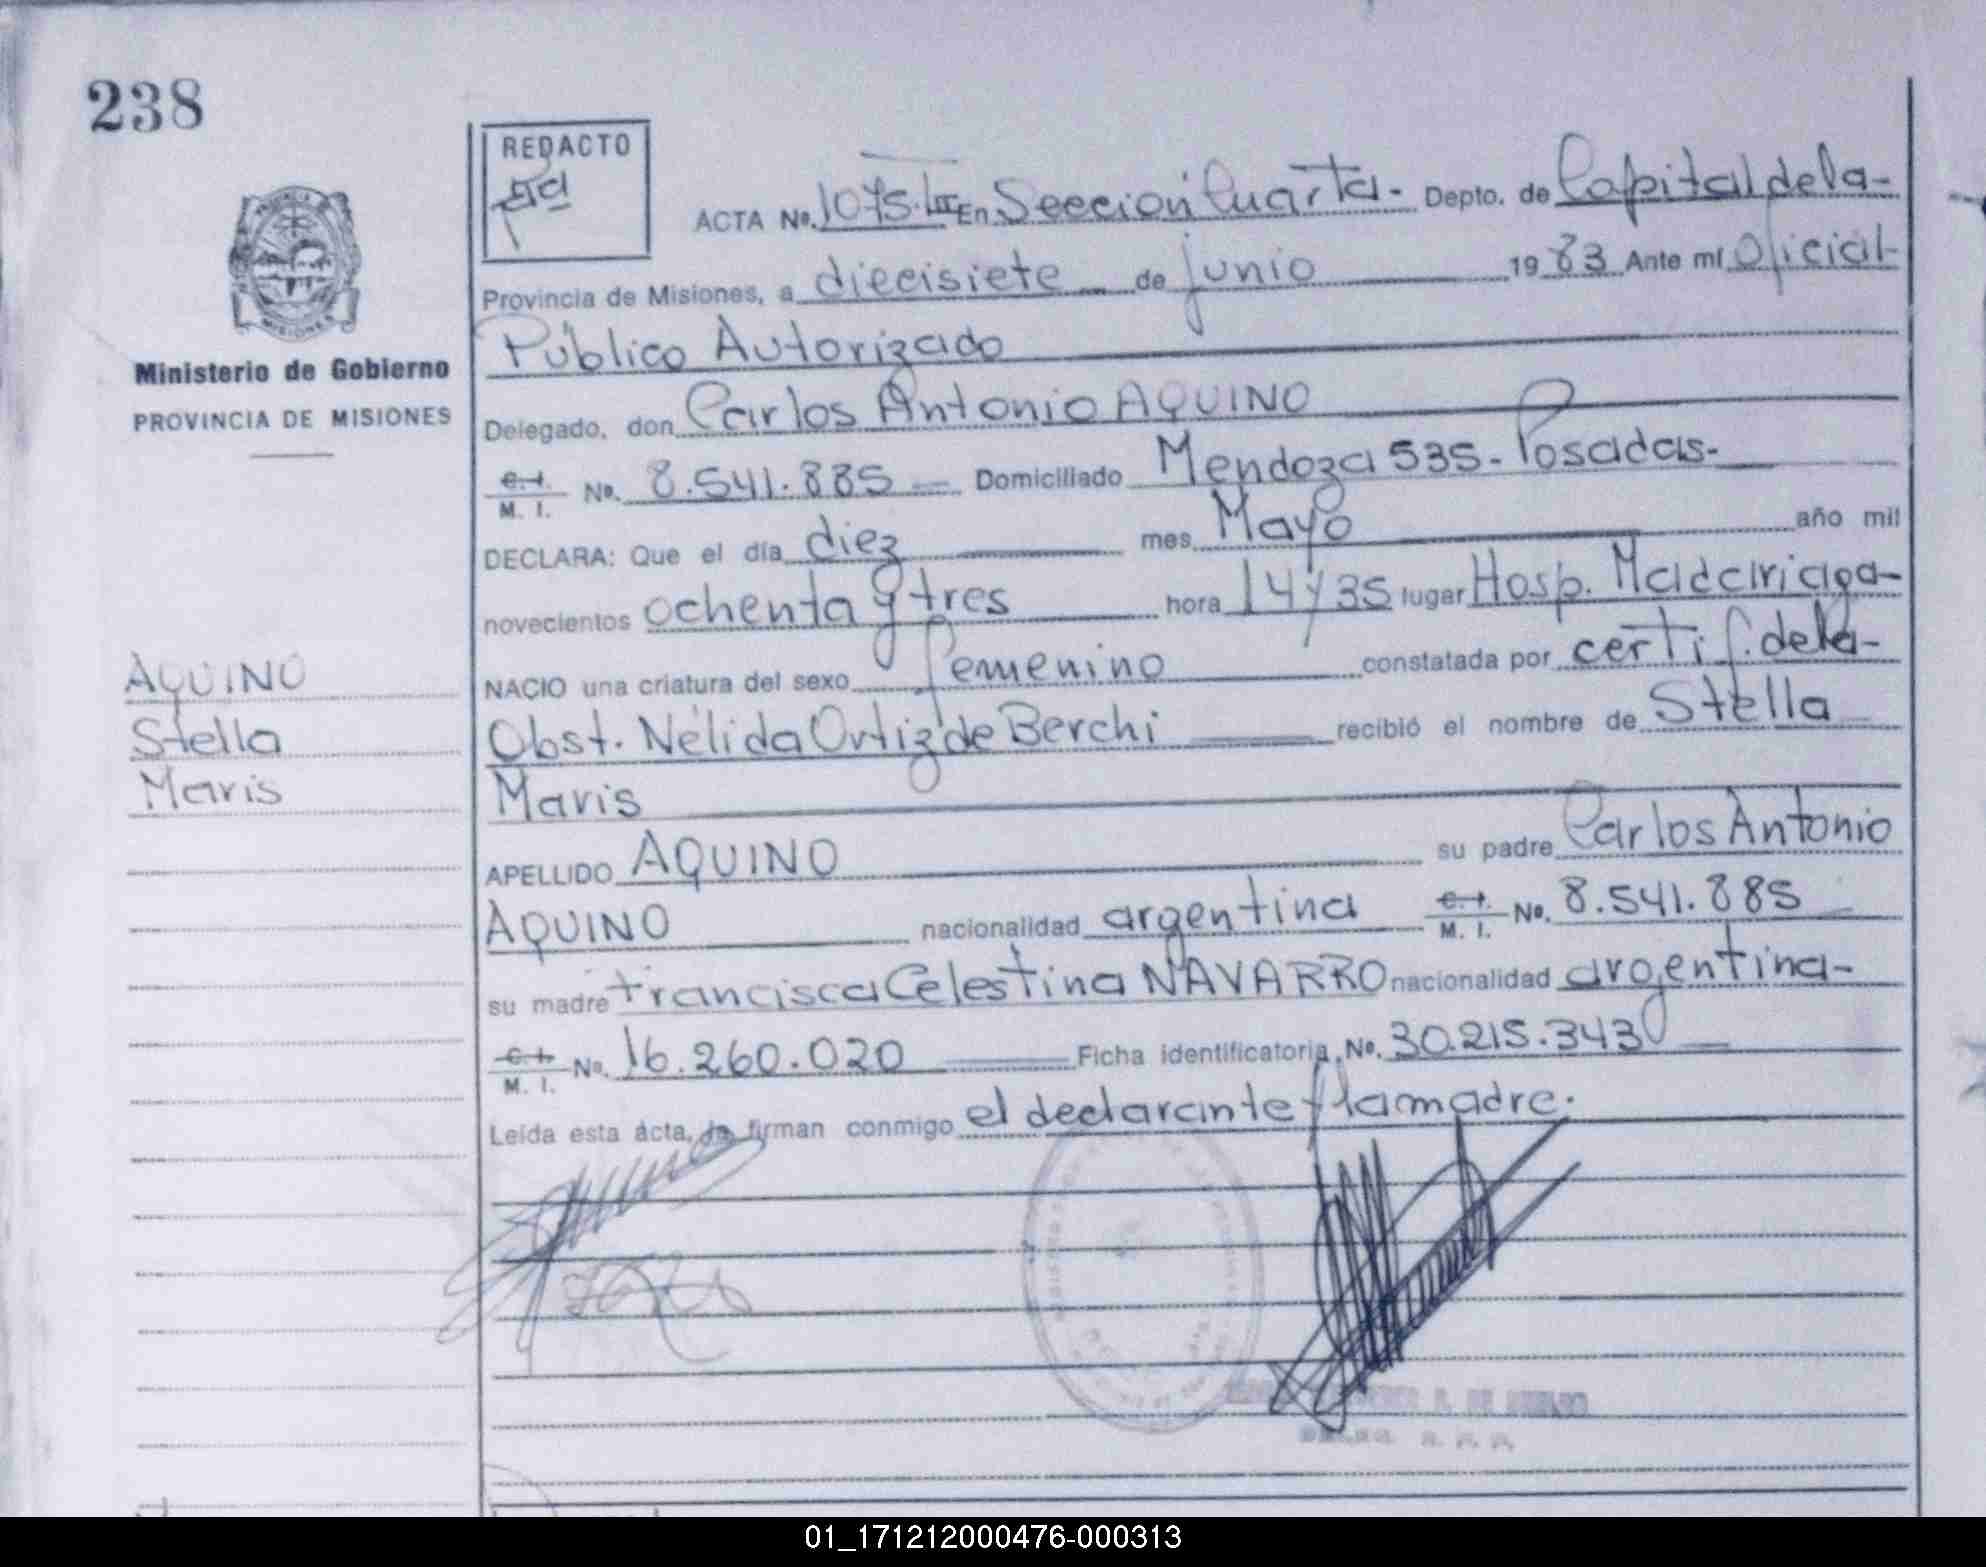 238
REDACTO
ACTA Nº. 1075. En Sección Cuarta.- Depto. de Capital de la-
Provincia de Misiones, a diecisiete de junio 19 83 Ante mí Oficial-
Público Autorizado
Ministerio de Gobierno
PROVINCIA DE MISIONES
Delegado, don Carlos Antonio AQUINO
C. I. M. I. Nº. 8.541.885 Domiciliado Mendoza 535- Posadas.-
DECLARA: Que el día diez mes Mayo año mil
novecientos ochenta y tres hora 14 y 35 lugar Hosp. Madariaga-
NACIO una criatura del sexo femenino constatada por certif. de la-
Obst. Nélida Ortiz de Berchi recibió el nombre de Stella
Maris
AQUINO
Stella
Maris
APELLIDO AQUINO su padre Carlos Antonio
AQUINO nacionalidad argentina C. I. M. I. Nº. 8.541.885
su madre Francisca Celestina NAVARRO nacionalidad argentina-
C. I. M. I. Nº. 16.260.020 Ficha identificatoria Nº. 30.215.343
Leída esta acta, la firman conmigo el declarante y la madre.
01_171212000476-000313